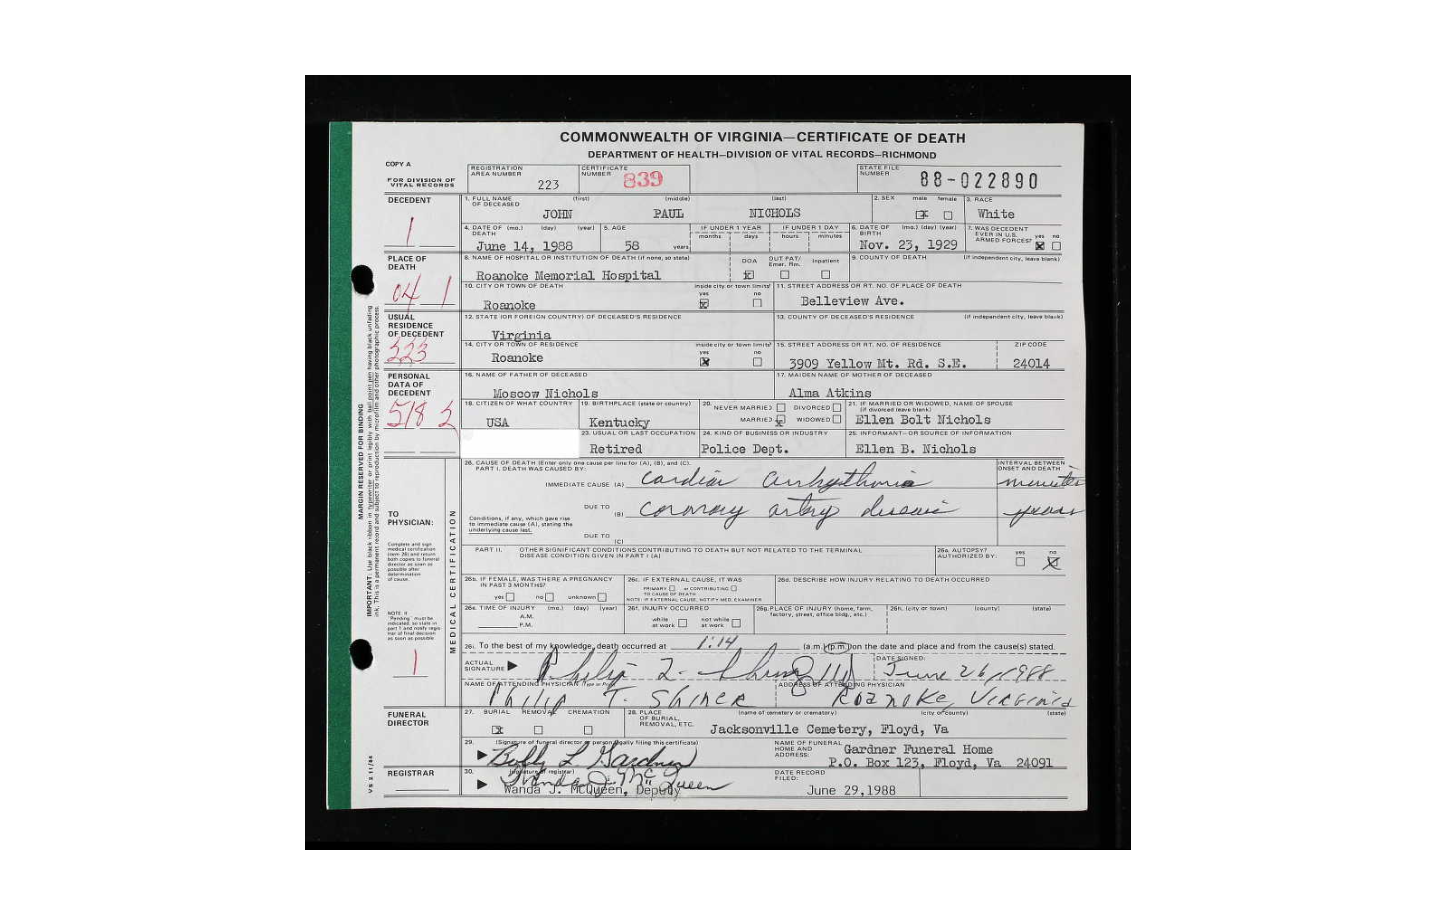 COMMONWEALTH OF VIRGINIA—CERTIFICATE OF DEATH
DEPARTMENT OF HEALTH—DIVISION OF VITAL RECORDS—RICHMOND
COPY A
FOR DIVISION OF VITAL RECORDS
REGISTRATION AREA NUMBER 223
CERTIFICATE NUMBER 839
STATE FILE NUMBER 88-022890
DECEDENT
1
1. FULL NAME OF DECEASED (first) (middle) (last)
JOHN PAUL NICHOLS
2. SEX male female
3. RACE
White
4. DATE OF DEATH (mo.) (day) (year)
June 14, 1988
5. AGE
58 years
IF UNDER 1 YEAR months days
IF UNDER 1 DAY hours minutes
6. DATE OF BIRTH (mo.) (day) (year)
Nov. 23, 1929
7. WAS DECEDENT EVER IN U.S. ARMED FORCES? yes no
PLACE OF DEATH
04 1
8. NAME OF HOSPITAL OR INSTITUTION OF DEATH (if none, so state)
Roanoke Memorial Hospital
DOA OUT PAT/ Emer. Rm. Inpatient
9. COUNTY OF DEATH (if independent city, leave blank)
10. CITY OR TOWN OF DEATH
Roanoke
inside city or town limits? yes no
11. STREET ADDRESS OR RT. NO. OF PLACE OF DEATH
Belleview Ave.
USUAL RESIDENCE OF DECEDENT
223
12. STATE (OR FOREIGN COUNTRY) OF DECEASED'S RESIDENCE
Virginia
13. COUNTY OF DECEASED'S RESIDENCE (if independent city, leave blank)
14. CITY OR TOWN OF RESIDENCE
Roanoke
inside city or town limits? yes no
15. STREET ADDRESS OR RT. NO. OF RESIDENCE
3909 Yellow Mt. Rd. S.E.
ZIP CODE
24014
PERSONAL DATA OF DECEDENT
518 2
16. NAME OF FATHER OF DECEASED
Moscow Nichols
17. MAIDEN NAME OF MOTHER OF DECEASED
Alma Atkins
18. CITIZEN OF WHAT COUNTRY
USA
19. BIRTHPLACE (state or country)
Kentucky
20. NEVER MARRIED DIVORCED
MARRIED WIDOWED
21. IF MARRIED OR WIDOWED, NAME OF SPOUSE (if divorced leave blank)
Ellen Bolt Nichols
23. USUAL OR LAST OCCUPATION
Retired
24. KIND OF BUSINESS OR INDUSTRY
Police Dept.
25. INFORMANT—OR SOURCE OF INFORMATION
Ellen B. Nichols
MARGIN RESERVED FOR BINDING
MEDICAL CERTIFICATION
26. CAUSE OF DEATH (Enter only one cause per line for (A), (B), and (C).
PART I. DEATH WAS CAUSED BY:
INTERVAL BETWEEN ONSET AND DEATH
IMMEDIATE CAUSE (A) cardiac arrhythmia minutes
DUE TO (B) coronary artery disease years
Conditions, if any, which gave rise to immediate cause (A), stating the underlying cause last.
DUE TO (C)
TO PHYSICIAN:
Complete and sign medical certification (item 26) and return both copies to funeral director as soon as possible after determination of cause.
PART II. OTHER SIGNIFICANT CONDITIONS CONTRIBUTING TO DEATH BUT NOT RELATED TO THE TERMINAL DISEASE CONDITION GIVEN IN PART I (A)
26a. AUTOPSY? AUTHORIZED BY: yes no
26b. IF FEMALE, WAS THERE A PREGNANCY IN PAST 3 MONTHS?
yes no unknown
26c. IF EXTERNAL CAUSE, IT WAS
PRIMARY or CONTRIBUTING
TO CAUSE OF DEATH
NOTE: IF EXTERNAL CAUSE, NOTIFY MED. EXAMINER
26d. DESCRIBE HOW INJURY RELATING TO DEATH OCCURRED
NOTE: If "Pending" must be indicated, so state in part 1 and notify registrar of final decision as soon as possible
26e. TIME OF INJURY (mo.) (day) (year)
A.M.
P.M.
26f. INJURY OCCURRED
while at work not while at work
26g. PLACE OF INJURY (home, farm, factory, street, office bldg., etc.)
26h. (city or town) (county) (state)
1
26i. To the best of my knowledge, death occurred at 1:14 (a.m.)(p.m.) on the date and place and from the cause(s) stated.
ACTUAL SIGNATURE
DATE SIGNED:
June 26, 1988
NAME OF ATTENDING PHYSICIAN (Type or Print)
Philip T. Shiner
ADDRESS OF ATTENDING PHYSICIAN
Roanoke, Virginia
FUNERAL DIRECTOR
27. BURIAL REMOVAL CREMATION
28. PLACE OF BURIAL, REMOVAL, ETC. (name of cemetery or crematory) (city or county) (state)
Jacksonville Cemetery, Floyd, Va
29. (Signature of funeral director or person legally filing this certificate)
Bobby L. Gardner
NAME OF FUNERAL HOME AND ADDRESS:
Gardner Funeral Home
P.O. Box 123, Floyd, Va 24091
REGISTRAR
30. (signature of registrar)
Wanda J. McQueen
Wanda J. McQueen, Deputy
DATE RECORD FILED:
June 29,1988